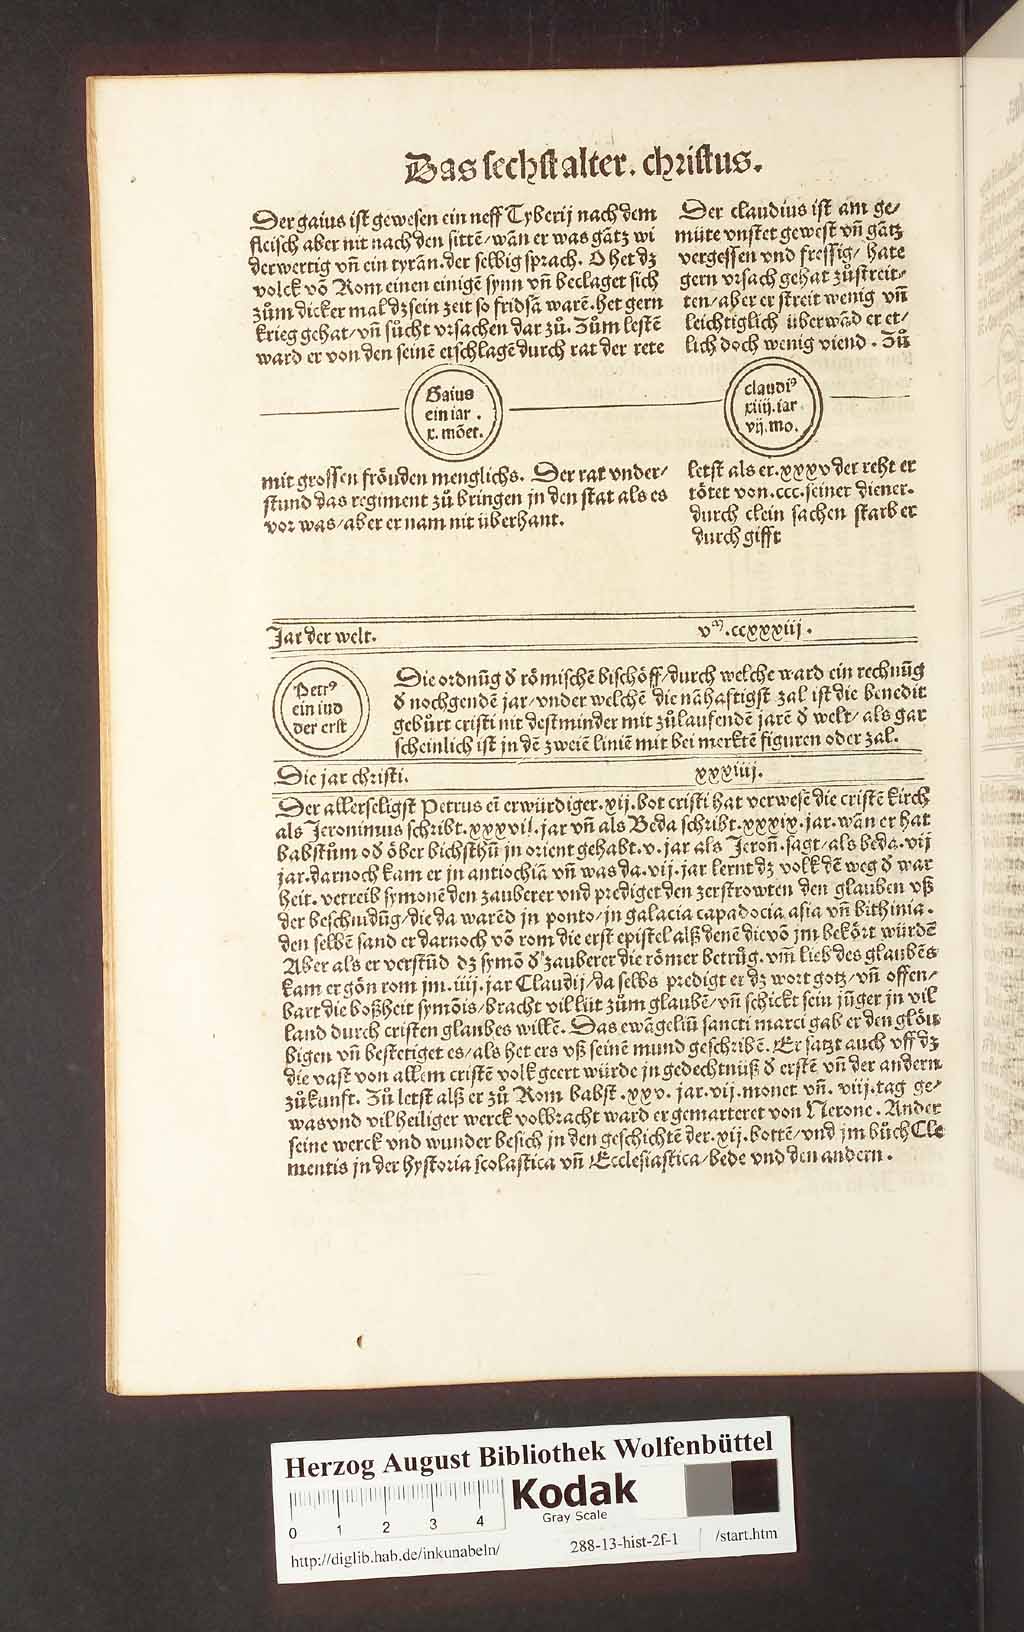 Das sechst alter. christus.
Der gaius ist gewesen ein neff Tyberij nach dem
fleisch aber nit nach den sittē/wān er was gātz wi
derwertig vn̄ ein tyrān.der selbig sprach. O het dz
volck vō Rom einen einigē synn vn̄ beclaget sich
zům dicker mal dz sein zeit so fridsā warē.het gern
krieg gehat/vn̄ sůcht vrsachen dar zů. Zům lestē
ward er von den seinē erschlagē durch rat der rete
Gaius
ein iar .
x. mōet.
mit grossen frôuden menglichs. Der rat vnder/
stund das regiment zů bringen jn den stat als es
vor was/aber er nam nit überhant.
Der claudius ist am ge/
müte vnstet gewest vn̄ gātz
vergessen vnd fressig/ hate
gern vrsach gehat zůstreit/
ten/aber er streit wenig vn̄
leichtiglich überwād er et/
lich doch wenig viend . Zů
claudiꝰ
xiiij.iar
vij.mo.
letst als er.xxxv der reht er
tôtet von.ccc.seiner diener.
durch clein sachen starb er
durch gifft
Jar der welt. vᵐ.ccxxxiij.
Petrꝰ
ein iud
der erst
Die ordnūg d̄ rômischē bischôff/durch welche ward ein rechnūg
d̄ nochgendē jar/vnder welchē die nāhaftigst zal ist die benedit
gebůrt cristi nit destminder mit zůlaufendē jarē d̄ welt/als gar
scheinlich ist jn dē zweiē liniē mit bei merktē figuren oder zal.
Die jar christi. xxxiiij.
Der allerseligst Petrus eī erwürdiger.xij.bot cristi hat verwesē die cristē kirch
als Jeronimus schribt.xxxvij.jar vn̄ als Beda schribt.xxxix.jar.wān er hat
babstům od̄ ôber bichsthū jn orient gehabt.v.jar als Jeron̄.sagt/als beda.vij
jar.darnoch kam er jn antiochiā vn̄ was da.vij.jar lernt dz volk dē weg d̄ war
heit.vetreib symonē den zauberer vnd prediget den zerstrowten den glauben vß
der beschnidūg/die da warēd jn ponto/jn galacia capadocia asia vn̄ bithinia.
den selbē sand er darnoch vō rom die erst epistel alß denē die vō jm bekôrt würdē
Aber als er verstūd dz symō d̄ zauberer die rômer betrůg.vm̄ lieb des glaubēs
kam er gôn rom jm.iiij.jar Claudij/da selbs predigt er dz wort gotz/vn̄ offen/
bart die boßheit symōis/bracht vil lüt zům glaubē/vn̄ schickt sein jūger jn vil
land durch cristen glaubes willē. Das ewāgeliū sancti marci gab er den glôu
bigen vn̄ bestetiget es/als het ers vß seinē mund geschribē. Er satzt auch vff dz
die vast von allem cristē volk geert würde jn gedechtnüß d̄ erstē vn̄ der andern
zůkunft. Zů letst alß er zů Rom babst.xxv.jar.vij.monet vn̄.viij.tag ge/
was vnd vil heiliger werck volbracht ward er gemarteret von Nerone.Ander
seine werck vnd wunder besich jn den geschichtē der.xij.bottē/vnd jm bůch Cle
mentis jn der hystoria scolastica vn̄ Ecclesiastica/bede vnd den andern.
Herzog August Bibliothek Wolfenbüttel
0 1 2 3 4
Kodak
Gray Scale
http://diglib.hab.de/inkunabeln/ 288-13-hist-2f-1 /start.htm